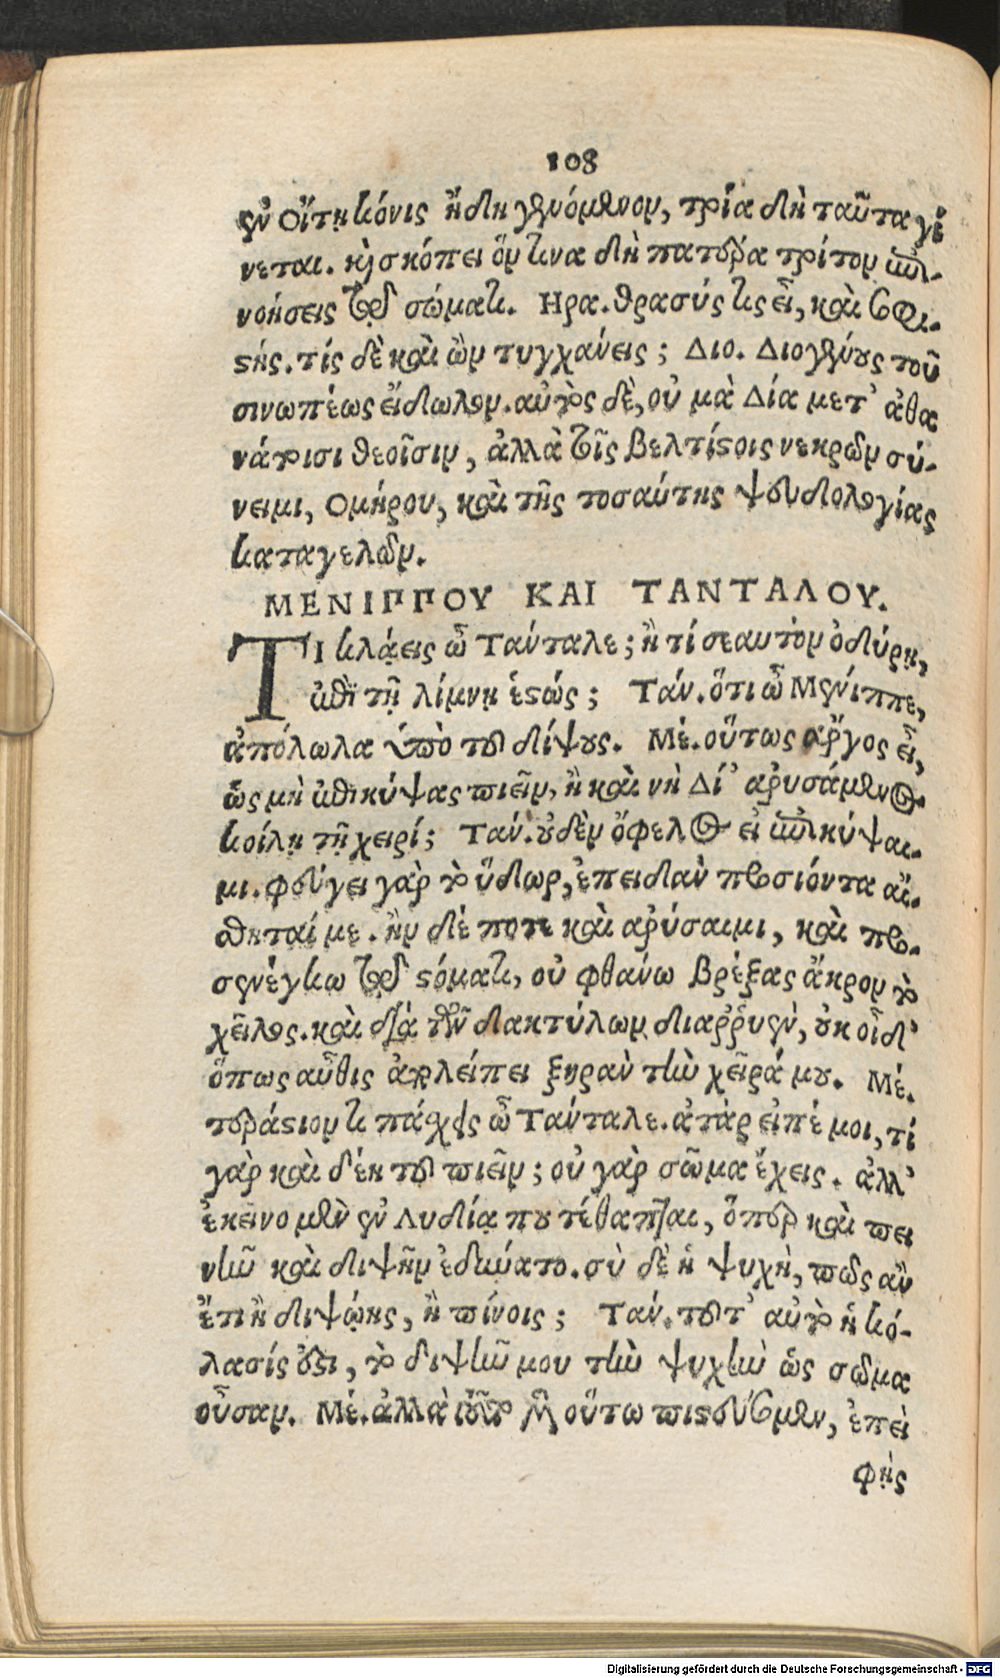 108
ἐν Οἴτῃ κόνις ἤδη γενόμενον, τρία δὴ ταῦτα γί
νεται. καὶ σκόπει ὅν τινα δὴ πατέρα τρίτον ἐπι-
νοήσεις τοῦ σώματι. Ηρα. θρασύς τις εἶ, καὶ σοφι-
στής. τίς δὲ καὶ ὢν τυγχάνεις; Διο. Διογένους τοῦ
σινωπέως εἴδωλον. αὐτὸς δὲ, οὐ μὰ Δία μετ' ἀθα
νάτοισι θεοῖσιν, ἀλλὰ τοῖς βελτίστοις νεκρῶν σύ-
νειμι, Ομήρου, καὶ τῆς τοσαύτης ψευδολογίας
καταγελῶν.
ΜΕΝΙΠΠΟΥ ΚΑΙ ΤΑΝΤΑΛΟΥ.
ΤΙ κλάεις ὦ Τάνταλε; ἢ τί σεαυτὸν ὀδύρῃ,
ἐπὶ τῇ λίμνῃ ἑστώς; Τάν. ὅτι ὦ Μένιππε,
ἀπόλωλα ὑπὸ τοῦ δίψους. Μέ. οὕτως ἀργὸς εἶ,
ὡς μὴ ἐπικύψας πιεῖν, ἢ καὶ νὴ Δί' ἀρυσάμενος
κοίλῃ τῇ χειρί; Τάν. οὐδὲν ὄφελος εἰ ἐπικύψαι-
μι. φεύγει γὰρ τὸ ὕδωρ, ἐπειδὰν προσιόντα αἴ-
σθηταί με. ἢν δέ ποτε καὶ ἀρύσαιμι, καὶ προ-
σενέγκω τοῦ στόματι, οὐ φθάνω βρέξας ἄκρον τὸ
χεῖλος. καὶ διὰ τῶν δακτύλων διαῤῥυὲν, οὐκ οἶδ'
ὅπως αὖθις ἀπολείπει ξηρὰν τὴν χεῖρά μου. Μέ.
τεράστιον τι πάσχεις ὦ Τάνταλε. ἀτὰρ εἰπέ μοι, τί
γὰρ καὶ δέῃ τοῦ πιεῖν; οὐ γὰρ σῶμα ἔχεις. ἀλλ'
ἐκεῖνο μὲν ἐν Λυδίᾳ που τέθαπται, ὅπερ καὶ πει
νῆν καὶ διψῆν ἐδύνατο. σὺ δὲ ἡ ψυχὴ, πῶς ἂν
ἔτι ἢ διψῴης, ἢ πίνοις; Τάν. τοῦτ' αὐτὸ ἡ κό-
λασίς ἐστι, τὸ διψῆν μου τὴν ψυχὴν ὡς σῶμα
οὖσαν. Μέ. ἀλλὰ τοῦτο μὲν οὕτω πιστεύσομεν, ἐπεὶ
φῂς
Digitalisierung gefördert durch die Deutsche Forschungsgemeinschaft - DFG